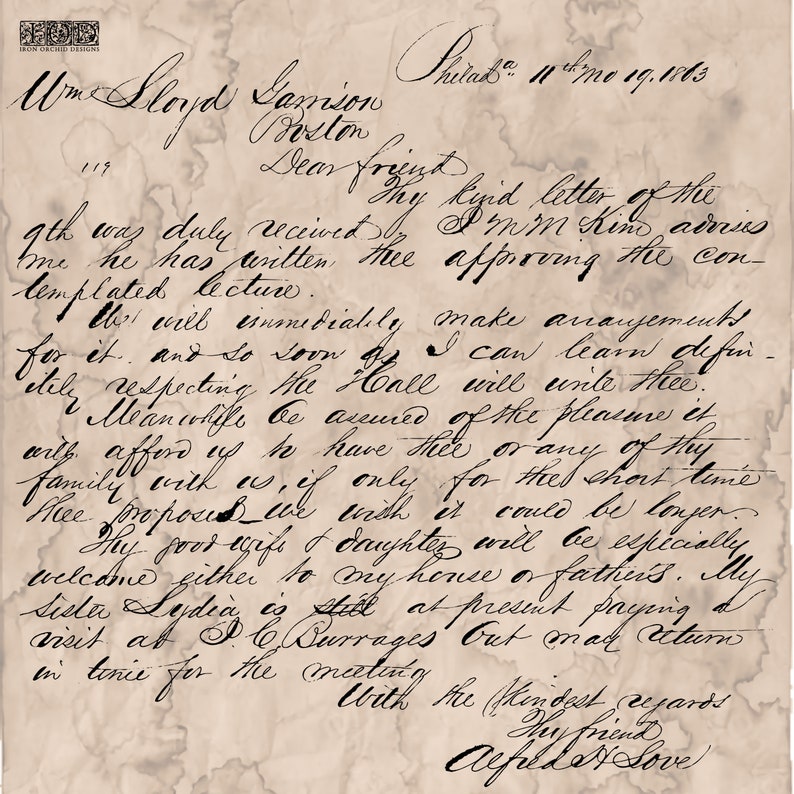 IOD
IRON ORCHID DESIGNS
Philada 11th Mo 19. 1863
Wm Lloyd Garrison
Boston
Dear friend
Thy kind letter of the
9th was duly received. J M McKim advises
me he has written thee approving the con-
templated lecture.
We will immediately make arrangements
for it. and so soon as I can learn defin-
itely respecting the Hall will write thee.
Meanwhile be assured of the pleasure it
will afford us to have thee or any of thy
family with us, if only for the short time
thee proposed - we wish it could be longer.
Thy good wife & daughter will be especially
welcome either to my house or father's. My
sister Lydia is still at present paying a
visit at J. C. Burrages but may return
in time for the meeting
With the kindest regards
Thy friend
Alfred H Love